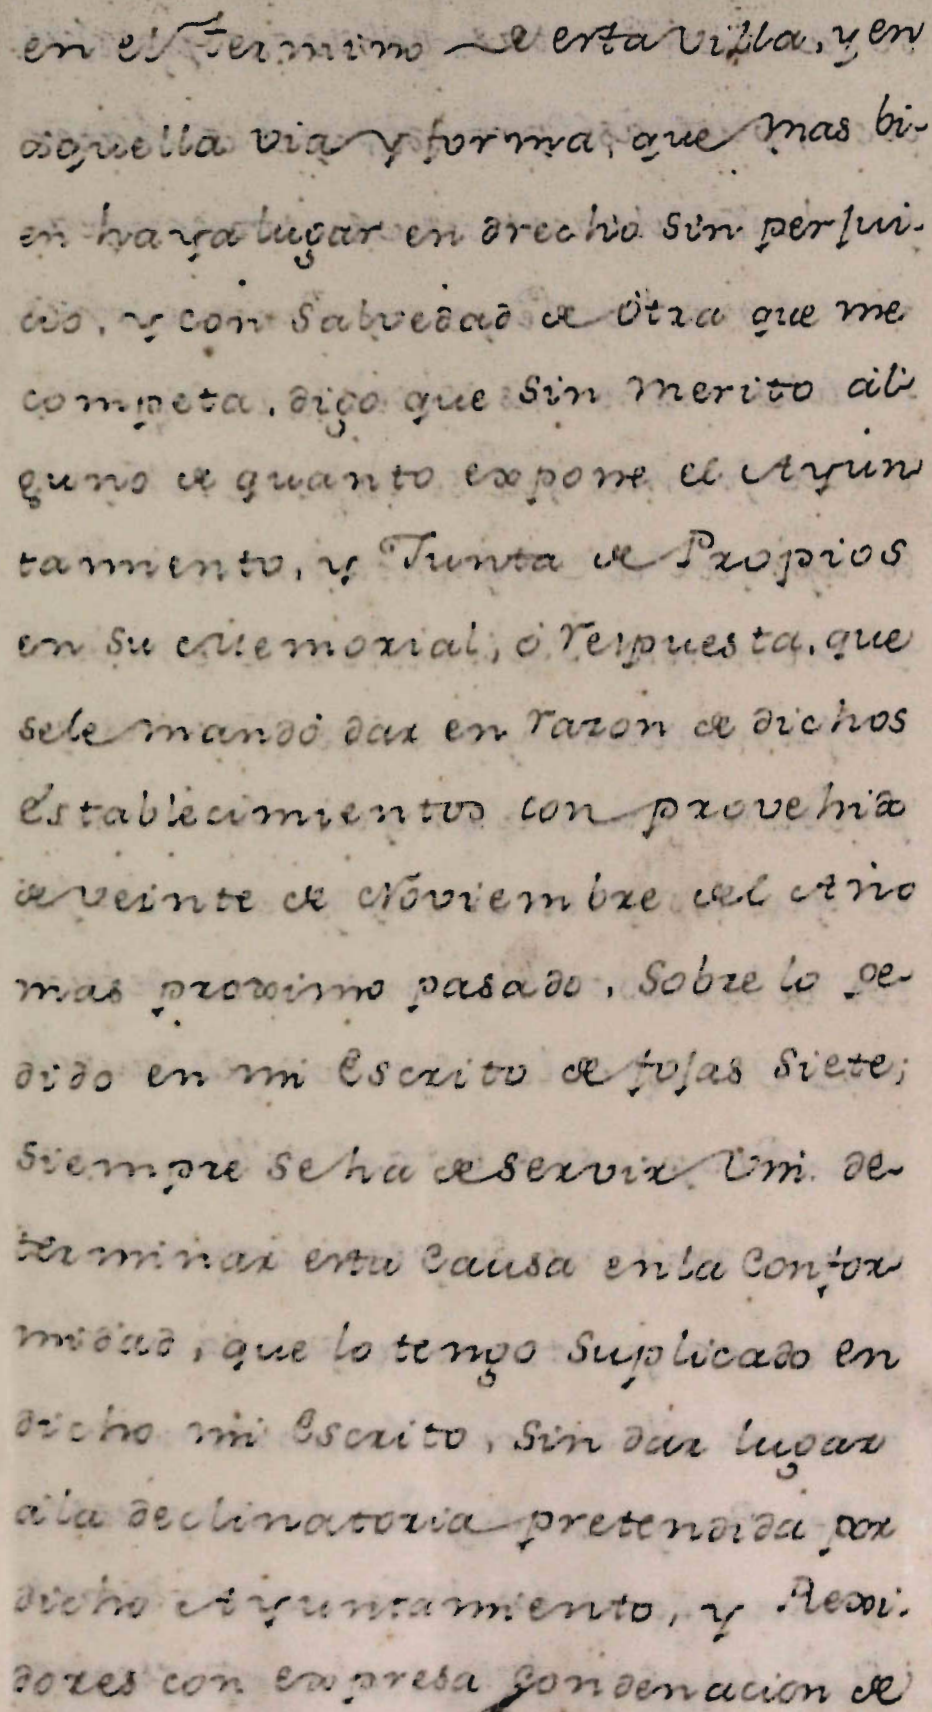 en el termino de esta villa, y en
aquella via y forma, que mas bi-
en haya lugar en drecho sin perjui-
cio, y con salvedad de otra que me
competa, digo que sin merito al-
guno de quanto expone el Ayun
tamiento, y Junta de Propios
en su Memorial, ó respuesta, que
sele mandó dar en razon de dichos
establecimientos con provehido
de veinte de Noviembre del Año
mas proximo pasado, sobre lo pe-
dido en mi escrito de fojas siete;
siempre se ha de servir Vm. de-
terminar esta causa en la confor-
midad, que lo tengo suplicado en
dicho mi escrito, sin dar lugar
á la declinatoria pretendida por
dicho Ayuntamiento, y Rexi-
dores con expresa condenacion de